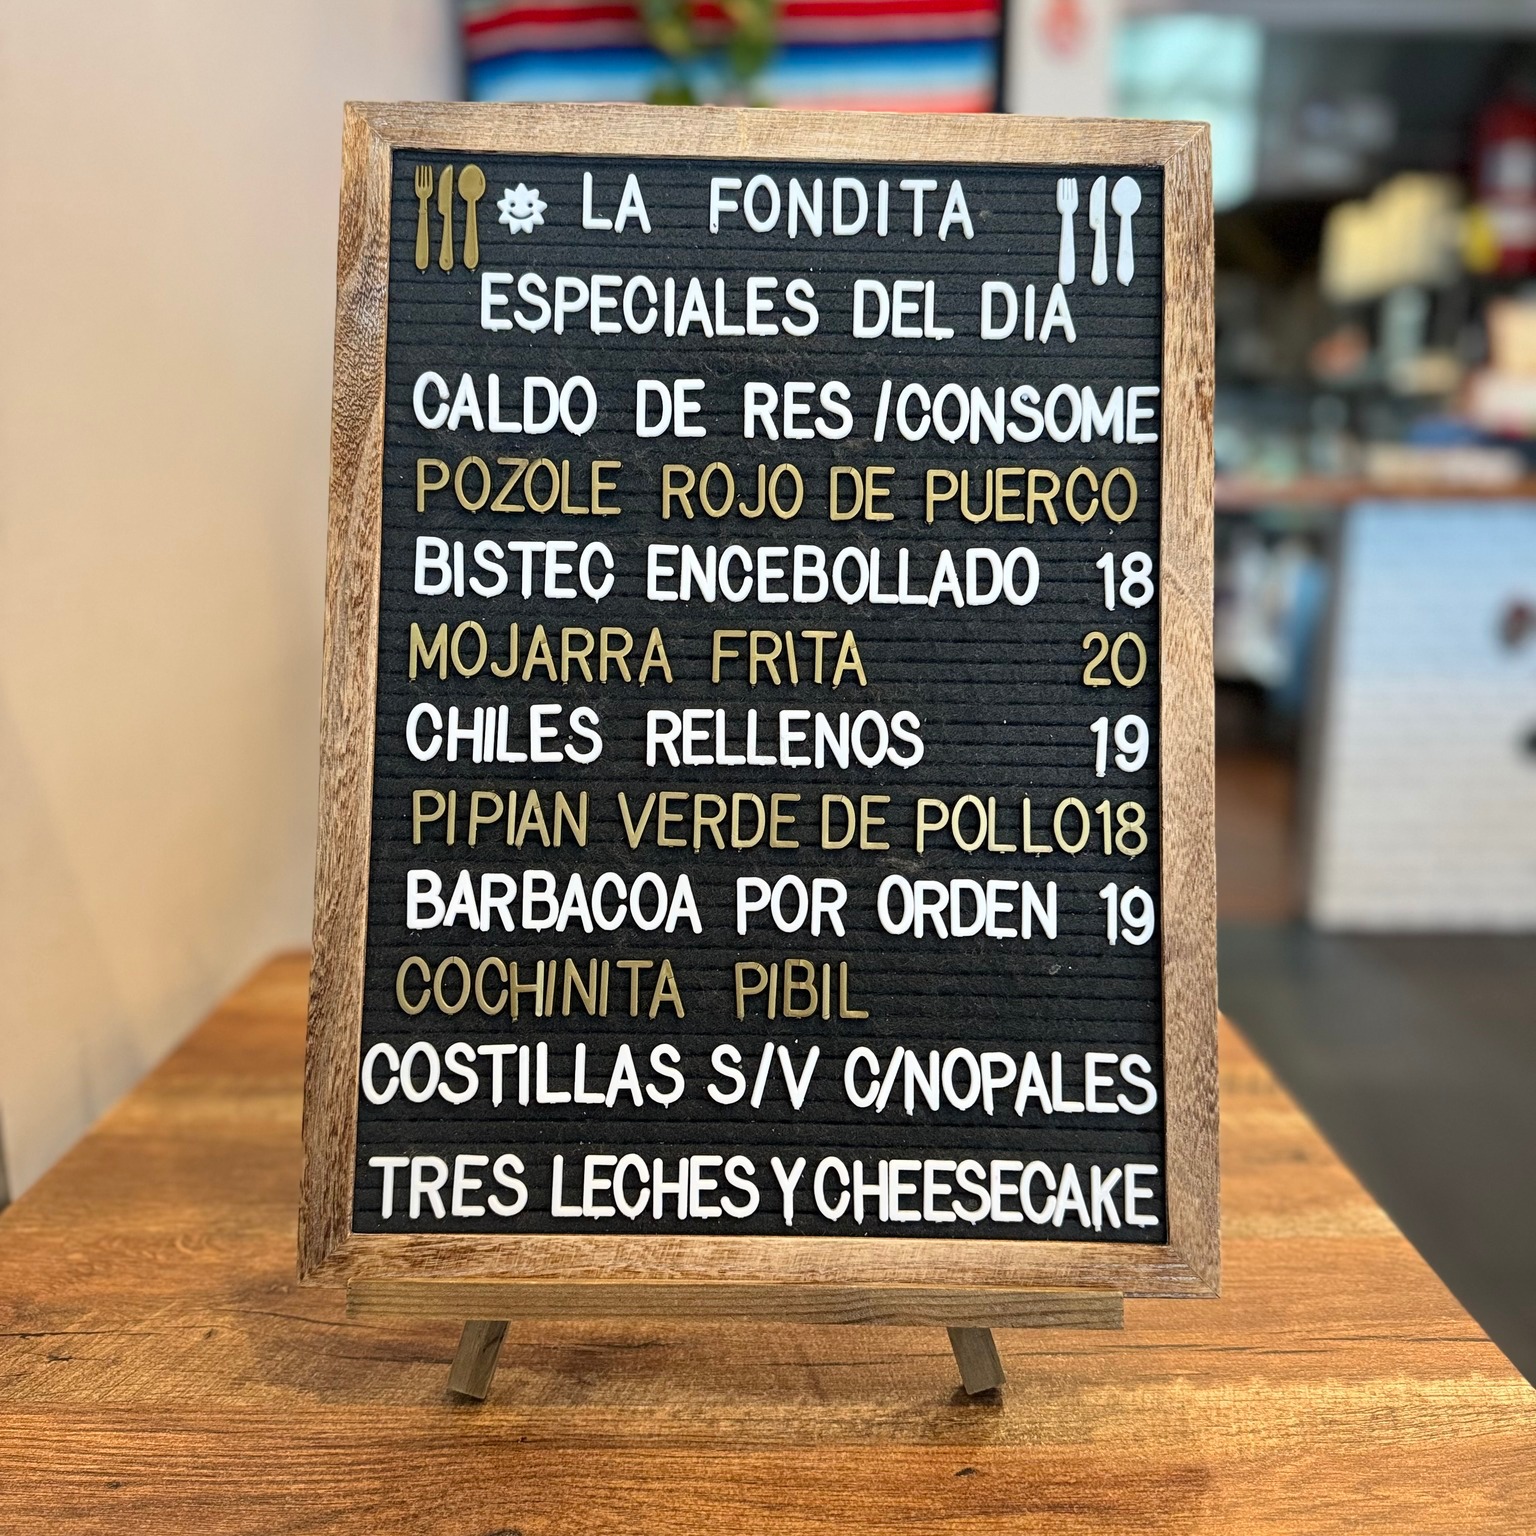 LA FONDITA
ESPECIALES DEL DIA
CALDO DE RES /CONSOME
POZOLE ROJO DE PUERCO
BISTEC ENCEBOLLADO 18
MOJARRA FRITA 20
CHILES RELLENOS 19
PIPIAN VERDE DE POLLO 18
BARBACOA POR ORDEN 19
COCHINITA PIBIL
COSTILLAS S/V C/NOPALES
TRES LECHES Y CHEESECAKE